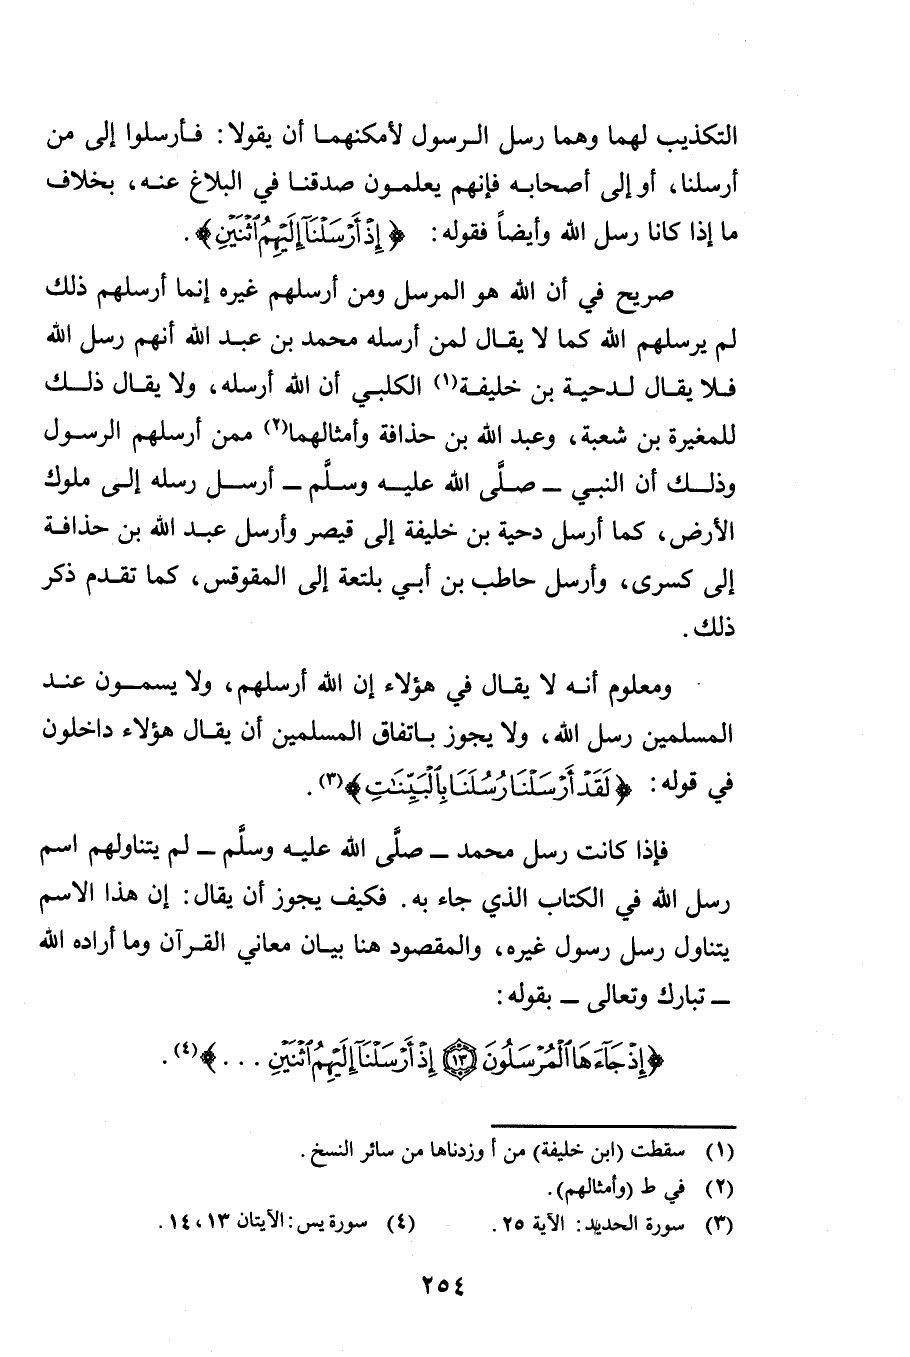 التكذيب لهما وهما رسل الرسول لأمكنهما أن يقولا: فأرسلوا إلى من
أرسلنا، أو إلى أصحابه فإنهم يعلمون صدقنا في البلاغ عنه، بخلاف
ما إذا كانا رسل الله وأيضاً فقوله: ﴿إِذْ أَرْسَلْنَآ إِلَيْهِمُ ٱثْنَيْنِ﴾.
صريح في أن الله هو المرسل ومن أرسلهم غيره إنما أرسلهم ذلك
لم يرسلهم الله كما لا يقال لمن أرسله محمد بن عبد الله أنهم رسل الله
فلا يقال لدحية بن خليفة(١) الكلبي أن الله أرسله، ولا يقال ذلك
للمغيرة بن شعبة، وعبد الله بن حذافة وأمثالهما(٢) ممن أرسلهم الرسول
وذلك أن النبي ــ صلَّى الله عليه وسلَّم ــ أرسل رسله إلى ملوك
الأرض، كما أرسل دحية بن خليفة إلى قيصر وأرسل عبد الله بن حذافة
إلى كسرى، وأرسل حاطب بن أبي بلتعة إلى المقوقس، كما تقدم ذكر
ذلك.
ومعلوم أنه لا يقال في هؤلاء إن الله أرسلهم، ولا يسمون عند
المسلمين رسل الله، ولا يجوز باتفاق المسلمين أن يقال هؤلاء داخلون
في قوله: ﴿لَقَدْ أَرْسَلْنَا رُسُلَنَا بِٱلْبَيِّنَٰتِ﴾(٣).
فإذا كانت رسل محمد ــ صلَّى الله عليه وسلَّم ــ لم يتناولهم اسم
رسل الله في الكتاب الذي جاء به. فكيف يجوز أن يقال: إن هذا الاسم
يتناول رسل رسول غيره، والمقصود هنا بيان معاني القرآن وما أراده الله
ــ تبارك وتعالى ــ بقوله:
﴿إِذْ جَآءَهَا ٱلْمُرْسَلُونَ ١٣ إِذْ أَرْسَلْنَآ إِلَيْهِمُ ٱثْنَيْنِ ...﴾(٤).
(١) سقطت (ابن خليفة) من أ وزدناها من سائر النسخ.
(٢) في ط (وأمثالهم).
(٣) سورة الحديد: الآية ٢٥. (٤) سورة يس: الآيتان ١٣، ١٤.
٢٥٤